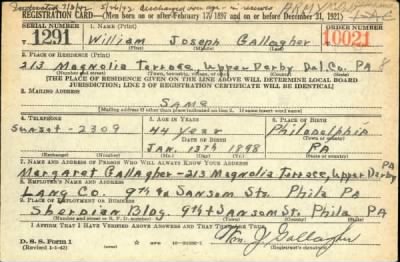 REGISTRATION CARD—(Men born on or after February 17, 1897 and on or before December 31, 1921)
SERIAL NUMBER
1. NAME (Print)
ORDER NUMBER
1291
William Joseph Gallagher
10021
2. PLACE OF RESIDENCE (Print)
213 Magnolia Terrace, Upper Derby Del. Co. PA
(Number and street) (Town, township, village, or city) (County) (State)
[THE PLACE OF RESIDENCE GIVEN ON THE LINE ABOVE WILL DETERMINE LOCAL BOARD
JURISDICTION; LINE 2 OF REGISTRATION CERTIFICATE WILL BE IDENTICAL]
3. MAILING ADDRESS
Same
[Mailing address if other than place indicated on line 2. If same insert word same]
4. TELEPHONE
5. AGE IN YEARS
6. PLACE OF BIRTH
Sunset-2309
44 year
Philadelphia
DATE OF BIRTH
(Town or county)
Jan. 13th 1898
PA
(Exchange) (Number)
(Mo.) (Day) (Yr.)
(State or country)
7. NAME AND ADDRESS OF PERSON WHO WILL ALWAYS KNOW YOUR ADDRESS
PA
Margaret Gallagher-213 Magnolia Terrace, Upper Derby
8. EMPLOYER'S NAME AND ADDRESS
Lang Co. 9th & Sansom Sts. Phila PA
9. PLACE OF EMPLOYMENT OR BUSINESS
Sherdian Bldg. 9th & Sansom Sts. Phila PA
(Number and street or R. F. D. number) (Town) (County) (State)
I AFFIRM THAT I HAVE VERIFIED ABOVE ANSWERS AND THAT THEY ARE TRUE.
D. S. S. Form 1
(Revised 1-1-42)
Wm. J. Gallagher
(Registrant's signature)